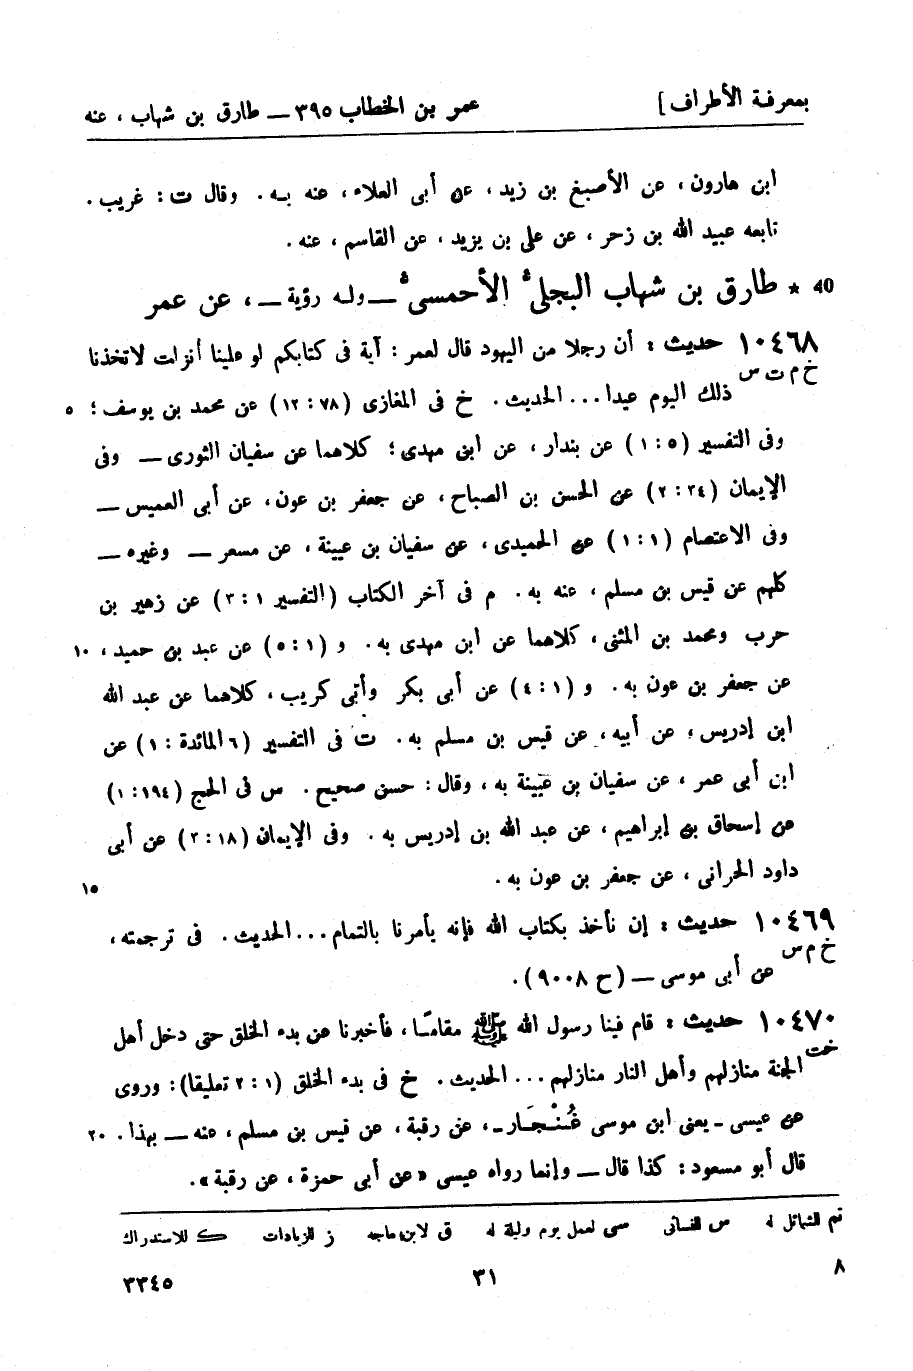 بمعرفة الأطراف] عمر بن الخطاب ٣٩٥ — طارق بن شهاب ، عنه
ابن هارون، عن الأصبغ بن زيد، عن أبى العلاء، عنه بـه. وقال ت: غريب.
تابعه عبيد الله بن زحر، عن على بن يزيد، عن القاسم، عنه.
40 ★ طارق بن شهاب البجلىّ الأحمسىّ — ولـه رؤية —، عن عمر
١٠٤٦٨ حديث : أن رجلا من اليهود قال لعمر: آية فى كتابكم لو علينا أنزلت لاتخذنا
خ م ت س ذلك اليوم عيدا ... الحديث. خ فى المغازى (٧٨: ١٢) عن محمد بن يوسف؛ ٥
وفى التفسير (٥: ١) عن بندار، عن ابن مهدى؛ كلاهما عن سفيان الثورى — وفى
الإيمان (٣٤: ٢) عن الحسن بن الصباح، عن جعفر بن عون، عن أبى العميس —
وفى الاعتصام (١: ١) عن الحميدى، عن سفيان بن عيينة، عن مسعر — وغيره —
كلهم عن قيس بن مسلم، عنه به. م فى آخر الكتاب (التفسير ١: ٣) عن زهير بن
حرب ومحمد بن المثنى، كلاهما عن ابن مهدى به. و (١: ٥) عن عبد بن حميد، ١٠
عن جعفر بن عون به. و (١: ٤) عن أبى بكر وأبى كريب، كلاهما عن عبد الله
ابن إدريس، عن أبيه، عن قيس بن مسلم به. ت فى التفسير (٦ المائدة: ١) عن
ابن أبى عمر، عن سفيان بن عيينة به، وقال: حسن صحيح. س فى الحج (١٩٤: ١)
عن إسحاق بن إبراهيم، عن عبد الله بن إدريس به. وفى الإيمان (١٨: ٢) عن أبى
داود الحرانى، عن جعفر بن عون به. ١٥
١٠٤٦٩ حديث : إن نأخذ بكتاب الله فإنه يأمرنا بالتمام ... الحديث. فى ترجمته،
خ م س عن أبى موسى — (ح ٩٠٠٨).
١٠٤٧٠ حديث : قام فينا رسول الله ﷺ مقامـًا، فأخبرنا عن بدء الخلق حتى دخل أهل
خت الجنة منازلهم وأهل النار منازلهم ... الحديث. خ فى بدء الخلق (١: ٢ تعليقا): وروى
عن عيسى ـ يعنى ابن موسى غُـنْـجَـار ـ، عن رقبة، عن قيس بن مسلم، عنه — بهذا. ٢٠
قال أبو مسعود: كذا قال — وإنما رواه عيسى «عن أبى حمزة، عن رقبة».
تم للشمائل له س للنسائى سى لعمل يوم وليلة له ق لابن ماجه ز للزيادات ك للاستدراك
٨ ٣١ ٣٣٤٥